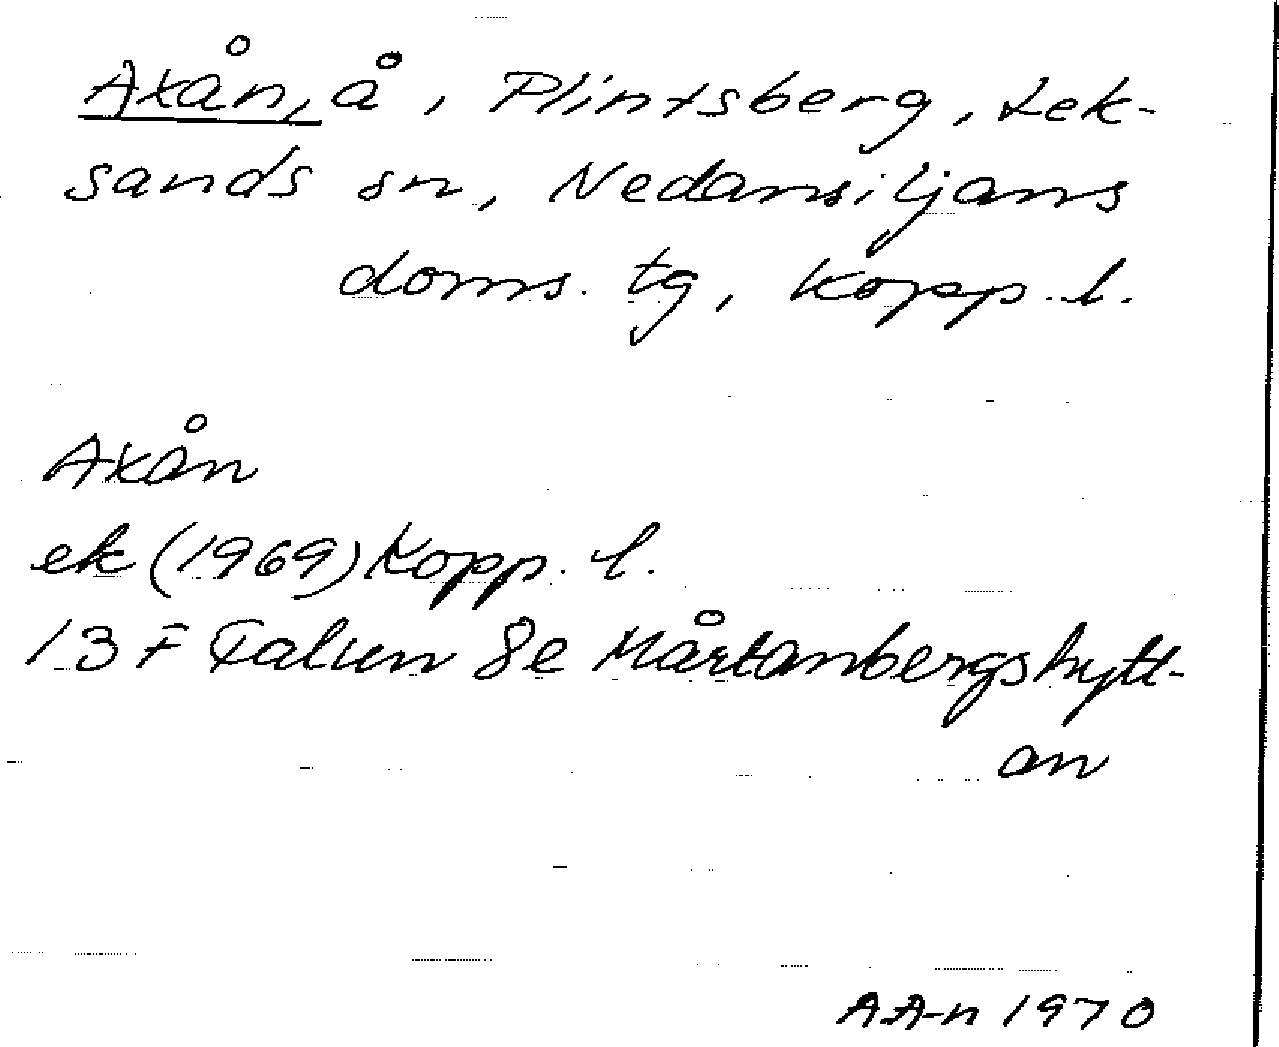 Axån, å, Plintsberg, Lek-
sands sn, Nedansiljans
doms. tg, Kopp. l.
Axån
ek (1969) Kopp. l.
13 F Falun 8e Mårtanbergshytt-
an
AA-n 1970